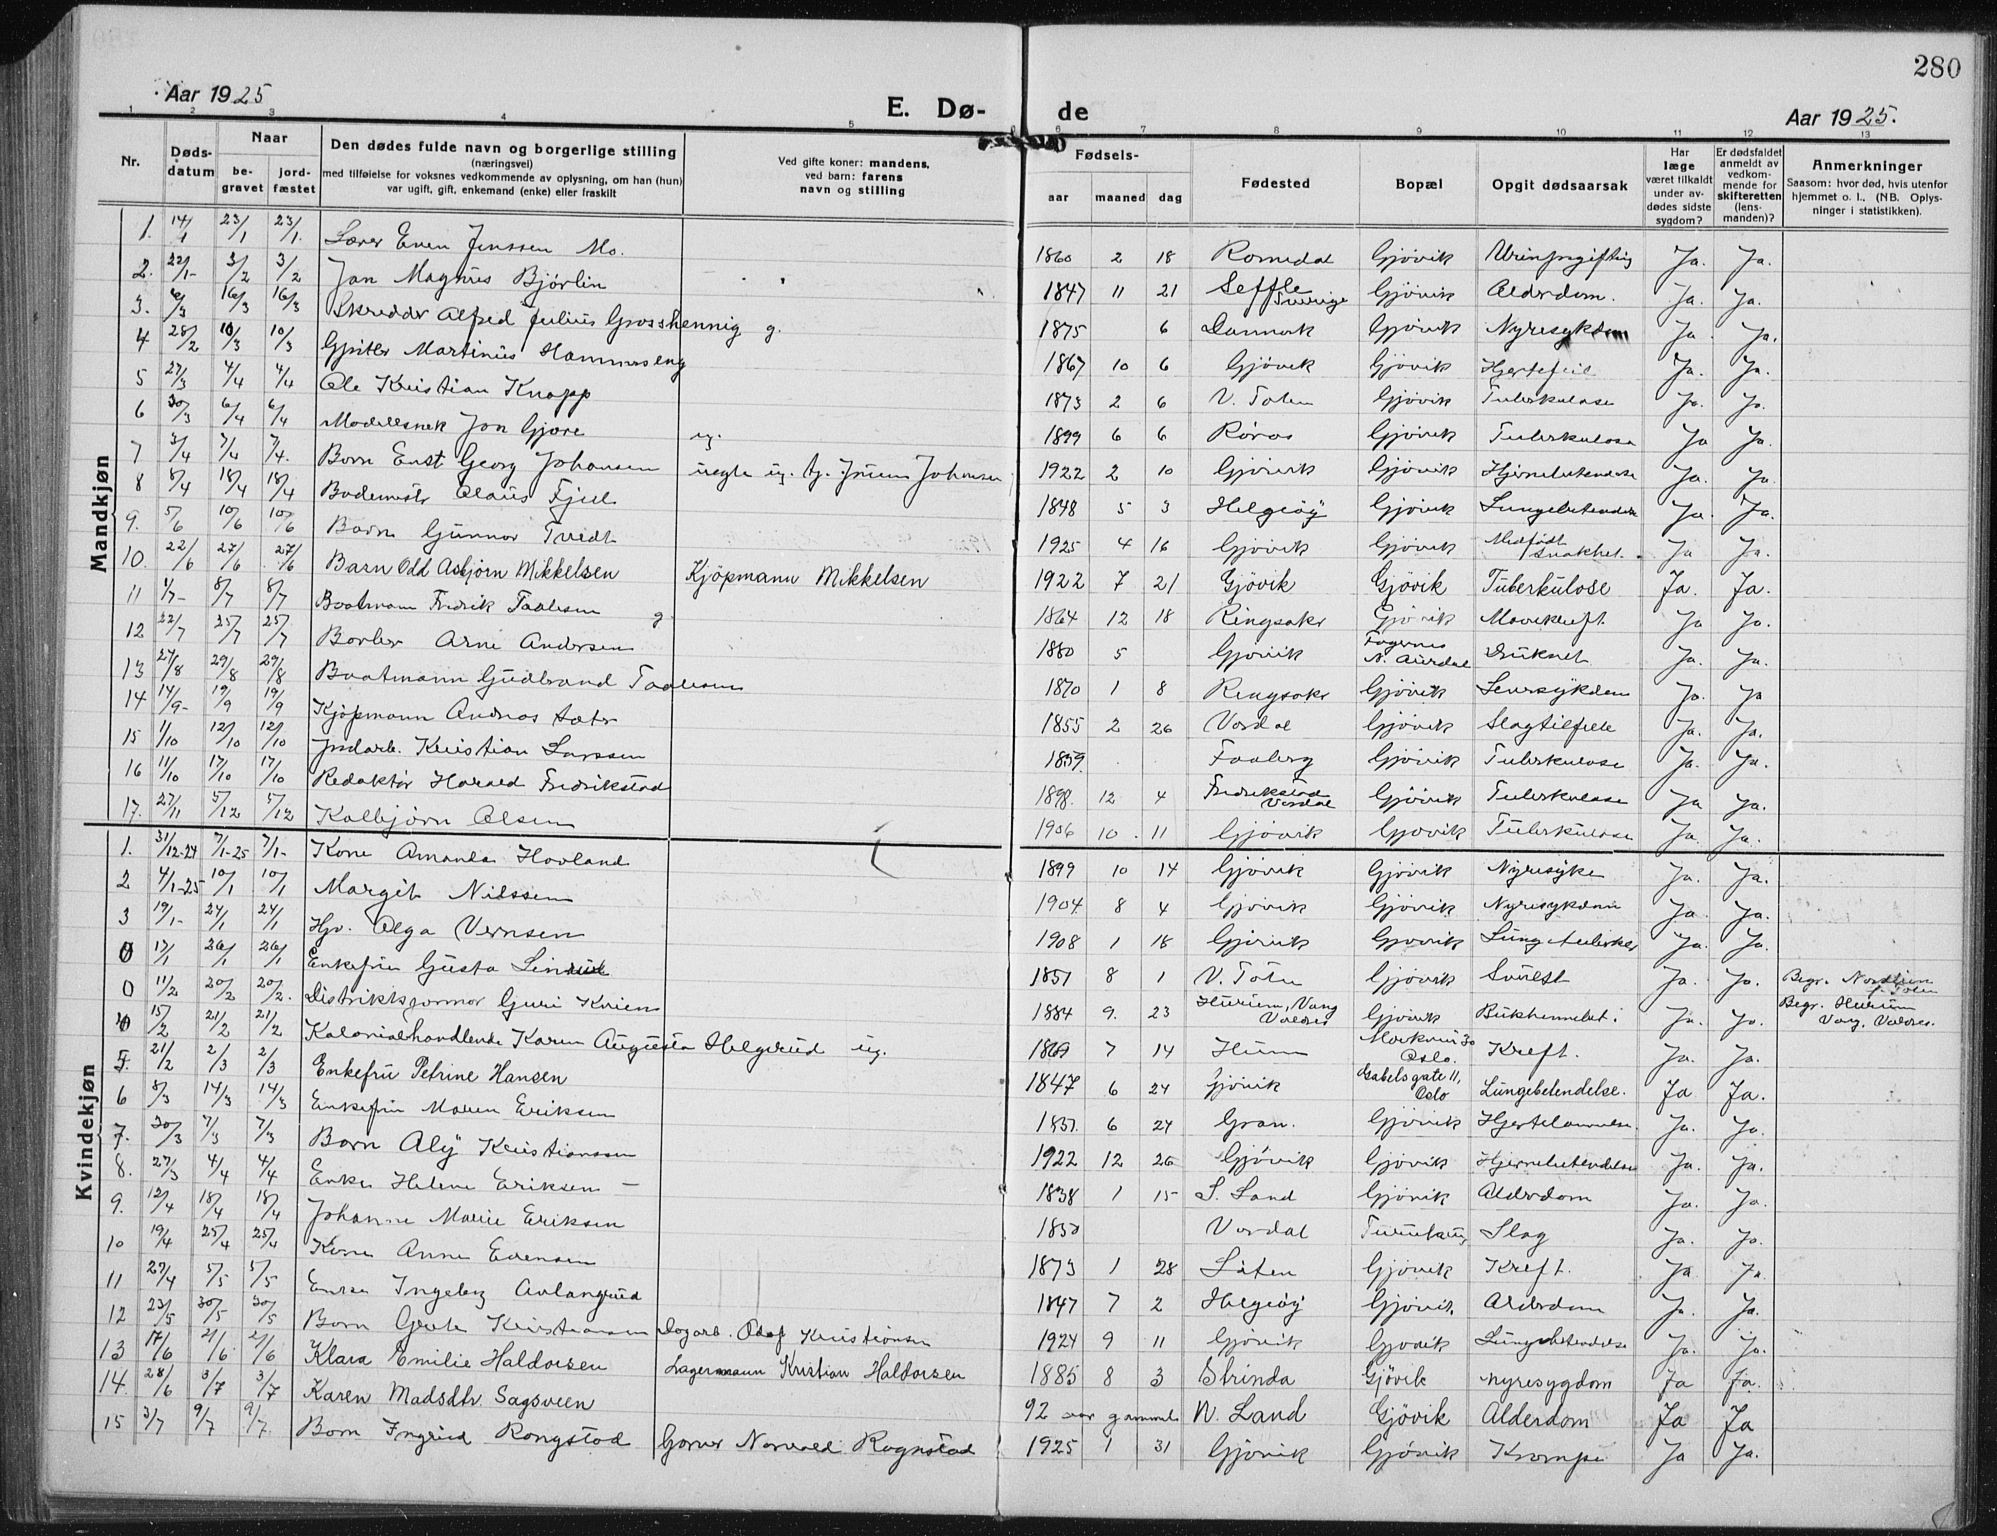 280
Aar 1925
E. Dø-
de
Aar 1925.
1 2 3 4 5 6 7 8 9 10 11 12 13
Nr.
Døds-
datum
Naar
be-
gravet
jord-
fæstet
Den dødes fulde navn og borgerlige stilling
(næringsvei)
med tilføielse for voksnes vedkommende av oplysning, om han (hun)
var ugift, gift, enkemand (enke) eller fraskilt
Ved gifte koner: mandens,
ved barn: farens
navn og stilling
Fødsels-
aar maaned dag
Fødested
Bopæl
Opgit dødsaarsak
Har
læge
været tilkaldt
under av-
dødes sidste
sygdom?
Er dødsfaldet
anmeldt av
vedkom-
mende for
skifteretten
(lens-
manden)?
Anmerkninger
Saasom: hvor død, hvis utenfor
hjemmet o. l., (NB. Oplys-
ninger i statistikken).
Mandkjøn
1. 14/1 23/1 23/1. Lærer Even Jenssen Mo. 1860 2 18 Romedal Gjövik Urinforgiftning Ja. Ja.
2. 22/1- 3/2 3/2 Jan Magnus Bjørlin 1847 11 21 Seffle Sverige Gjövik Alderdom. Ja. Ja.
3. 6/3 16/3 16/3 Skredder Alfred Julius Grosshennig g. 1875 6 Danmark Gjövik Nyresykdom Ja. Ja.
4 28/2 10/3 10/3 Martinus Hammerseng 1867 10 6 Gjövik Gjövik Hjertefeil Ja. Ja.
5 27/3 4/4 4/4 Ole Kristian Knapp 1873 2 6 V. Toten Gjövik Tuberkulose Ja. Ja.
6 30/3 6/4 6/4 Modellsnek Jon Gjære ug. 1899 6 6 Röros Gjövik Tuberkulose Ja Ja.
7 3/4 7/4 7/4. Barn Ernst Georg Johansen uegte ug. Johansen 1922 2 10 Gjövik Gjövik Hjernebetendelse Ja. Ja.
8 8/4 18/4 18/4 Bademstr Olaus Fjeld 1848 5 3 Helgöy Gjövik Lungebetendelse Ja. Ja.
9. 5/6 10/6 10/6 Barn Gunnar Tvedt 1925 4 16 Gjövik Gjövik Medfödt svakhet. Ja Ja.
10. 22/6 27/6 27/6 Barn Odd Asbjörn Mikkelsen Kjöpmann Mikkelsen 1922 7 21 Gjövik Gjövik Tuberkulose Ja. Ja.
11 1/7- 8/7 8/7 Baatmann Fredrik Taalesen g 1864 12 18 Ringsaker Gjövik Mavekreft. Ja Ja.
12 22/7 25/7 25/7 Arne Andersen 1880 5 Gjövik Fagernes N. Aurdal Druknet Ja. Ja.
13 27/8 29/8 29/8 Baatmann Gudbrand Taalesen 1870 1 8 Ringsaker Gjövik Leversykdom Ja. Ja
14 14/9- 19/9 19/9 Kjöpmann Andreas Sæter 1855 2 26 Vardal Gjövik Slagtilfelle Ja. Ja.
15 1/10 12/10 12/10 Jndarb. Kristian Larssen 1859. Faaberg Gjövik Tuberkulose Ja. Ja.
16 11/10 17/10 17/10 Redaktör Harald Fredrikstad 1898. 12 4 Fredrikstad Vardal Gjövik Tuberkulose Ja Ja.
17. 27/11 5/12 5/12 Kolbjørn Olsen 1906 10. 11 Gjövik Gjövik Tuberkulose Ja. Ja.
Kvindekjøn
1. 31/12-24 7/1-25 7/1- Kone Amanda Hovland 1899 10 14 Gjövik Gjövik Nyresyke Ja. Ja.
2 4/1-25 10/1 10/1 Margit Nilssen 1904 8 4 Gjövik Gjövik Nyresykdom Ja. Ja.
3 19/1- 24/1 24/1 Hjv. Olga Vernsen 1908 1 18 Gjövik Gjövik Ja. Ja.
0 17/1 26/1 26/1 Enkefru Gusta 1851 8 1 V. Toten Gjövik Ja. Ja. Begr. Nordlien
0 11/2 20/2 20/2. Distriktsjormor Guri Kvien 1884 9. 23 Hurum, Vang Valdres Gjövik Bukhinnebet. Ja. Ja. Begr. Hurum Vang, Valdres.
4 15/2 21/2 21/2 Kolonialhandlende Karen Augusta Helgerud ug. 1869 7 14 Oslo. Kreft. Ja. Ja.
5. 21/2 2/3 2/3 Enkefru Petrine Hansen 1847 6 24 Gjövik Gabelsgate 11, Oslo Lungebetendelse. Ja Ja.
6 8/3 14/3 14/3 Enkefru Maren Eriksen 6 24 Gran. Gjövik Ja. Ja.
7. 30/3 7/3 7/3 Barn Aly Kristianssen 1922 12 26 Gjövik Gjövik Hjernebetendelse Ja. Ja.
8. 27/3 4/4 4/4 Enke Helene Eriksen – 1838 1 15 S. Land Gjövik Alderdom Ja. Ja.
9. 12/4 18/4 18/4 Johanne Marie Eriksen 1850 Vardal Slag Ja. Ja.
10 19/4 25/4 25/4 Kone Anne Evensen 1873 1 28 Löten Gjövik Kreft. Ja Ja
11 27/4 5/5 5/5 Enke Ingeborg 1847 7 2 Helgöy Gjövik Alderdom Ja. Ja.
12 23/5 30/5 30/5 Barn Grete Kristiansen Dagarb. Olaf Kristiansen 1924 9 11 Gjövik Gjövik Lungebetendelse Ja. Ja.
13 17/6 21/6 21/6 Klara Emilie Haldorsen Lagermann Kristian Haldorsen 1885 8 3 Strinda Gjövik nyresygdom Ja Ja.
14. 28/6 3/7 3/7 Karen Madsdtr. Sagsveen 92 aar gammel N. Land Gjövik Alderdom Ja Ja
15 3/7 9/7 9/7. Barn Ingrid Rongstad Garver Norvald Rognstad 1925 1 31 Gjövik Gjövik Krampe Ja Ja.